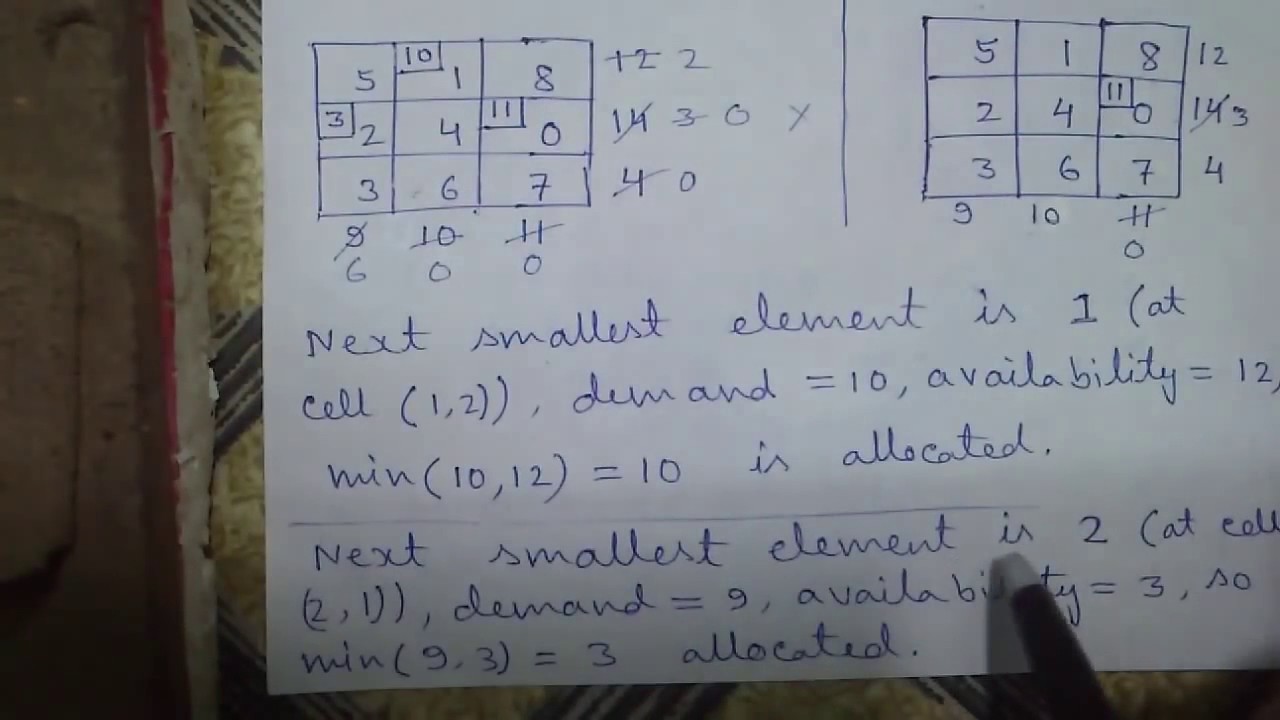 10
5 1 8 12 2
3 11
2 4 0 14 3 0 x
3 6 7 4 0
9 10 11
6 0 0
5 1 8 12
11
2 4 0 14 3
3 6 7 4
9 10 11
0
Next smallest element is 1 (at
cell (1,2)), demand = 10, availability = 12,
min(10,12) = 10 is allocated.
Next smallest element is 2 (at cell
(2,1)), demand = 9, availability = 3, so
min(9,3) = 3 allocated.